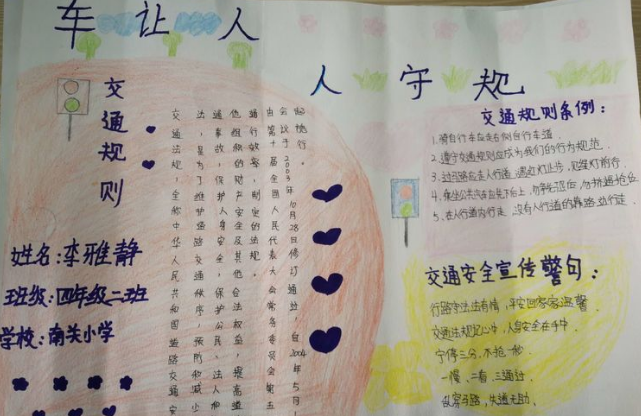 车让人
人守规
交通规则
姓名:李雅静
班级:四年级二班
学校:南关小学
交通法规,全称中华人民共和国道路交通安
法,是为了维护道路交通秩序,预防和减少
通事故,保护人身安全,保护公民、法人和
他组织的财产安全及其他合法权益,提高
通行效率,制定的法规。
由第十届全国人民代表大会常务委员会第五
会议于2003年10月28日修订通过,自2004年5月1
起施行。
交通规则条例:
1.骑自行车应走右侧自行车道.
2.遵守交通规则应成为我们的行为规范.
3.过马路应走人行道,遇红灯止步,见绿灯前行.
4.乘坐公共汽车应先下后上,勿拥挤抢位
5.在人行道内行走,没有人行道的靠路边行走.
交通安全宣传警句:
行路守法法有情,平安回家家温馨
交通法规记心中,人身安全在手中
宁停三分,不抢一秒
一慢、二看、三通过.